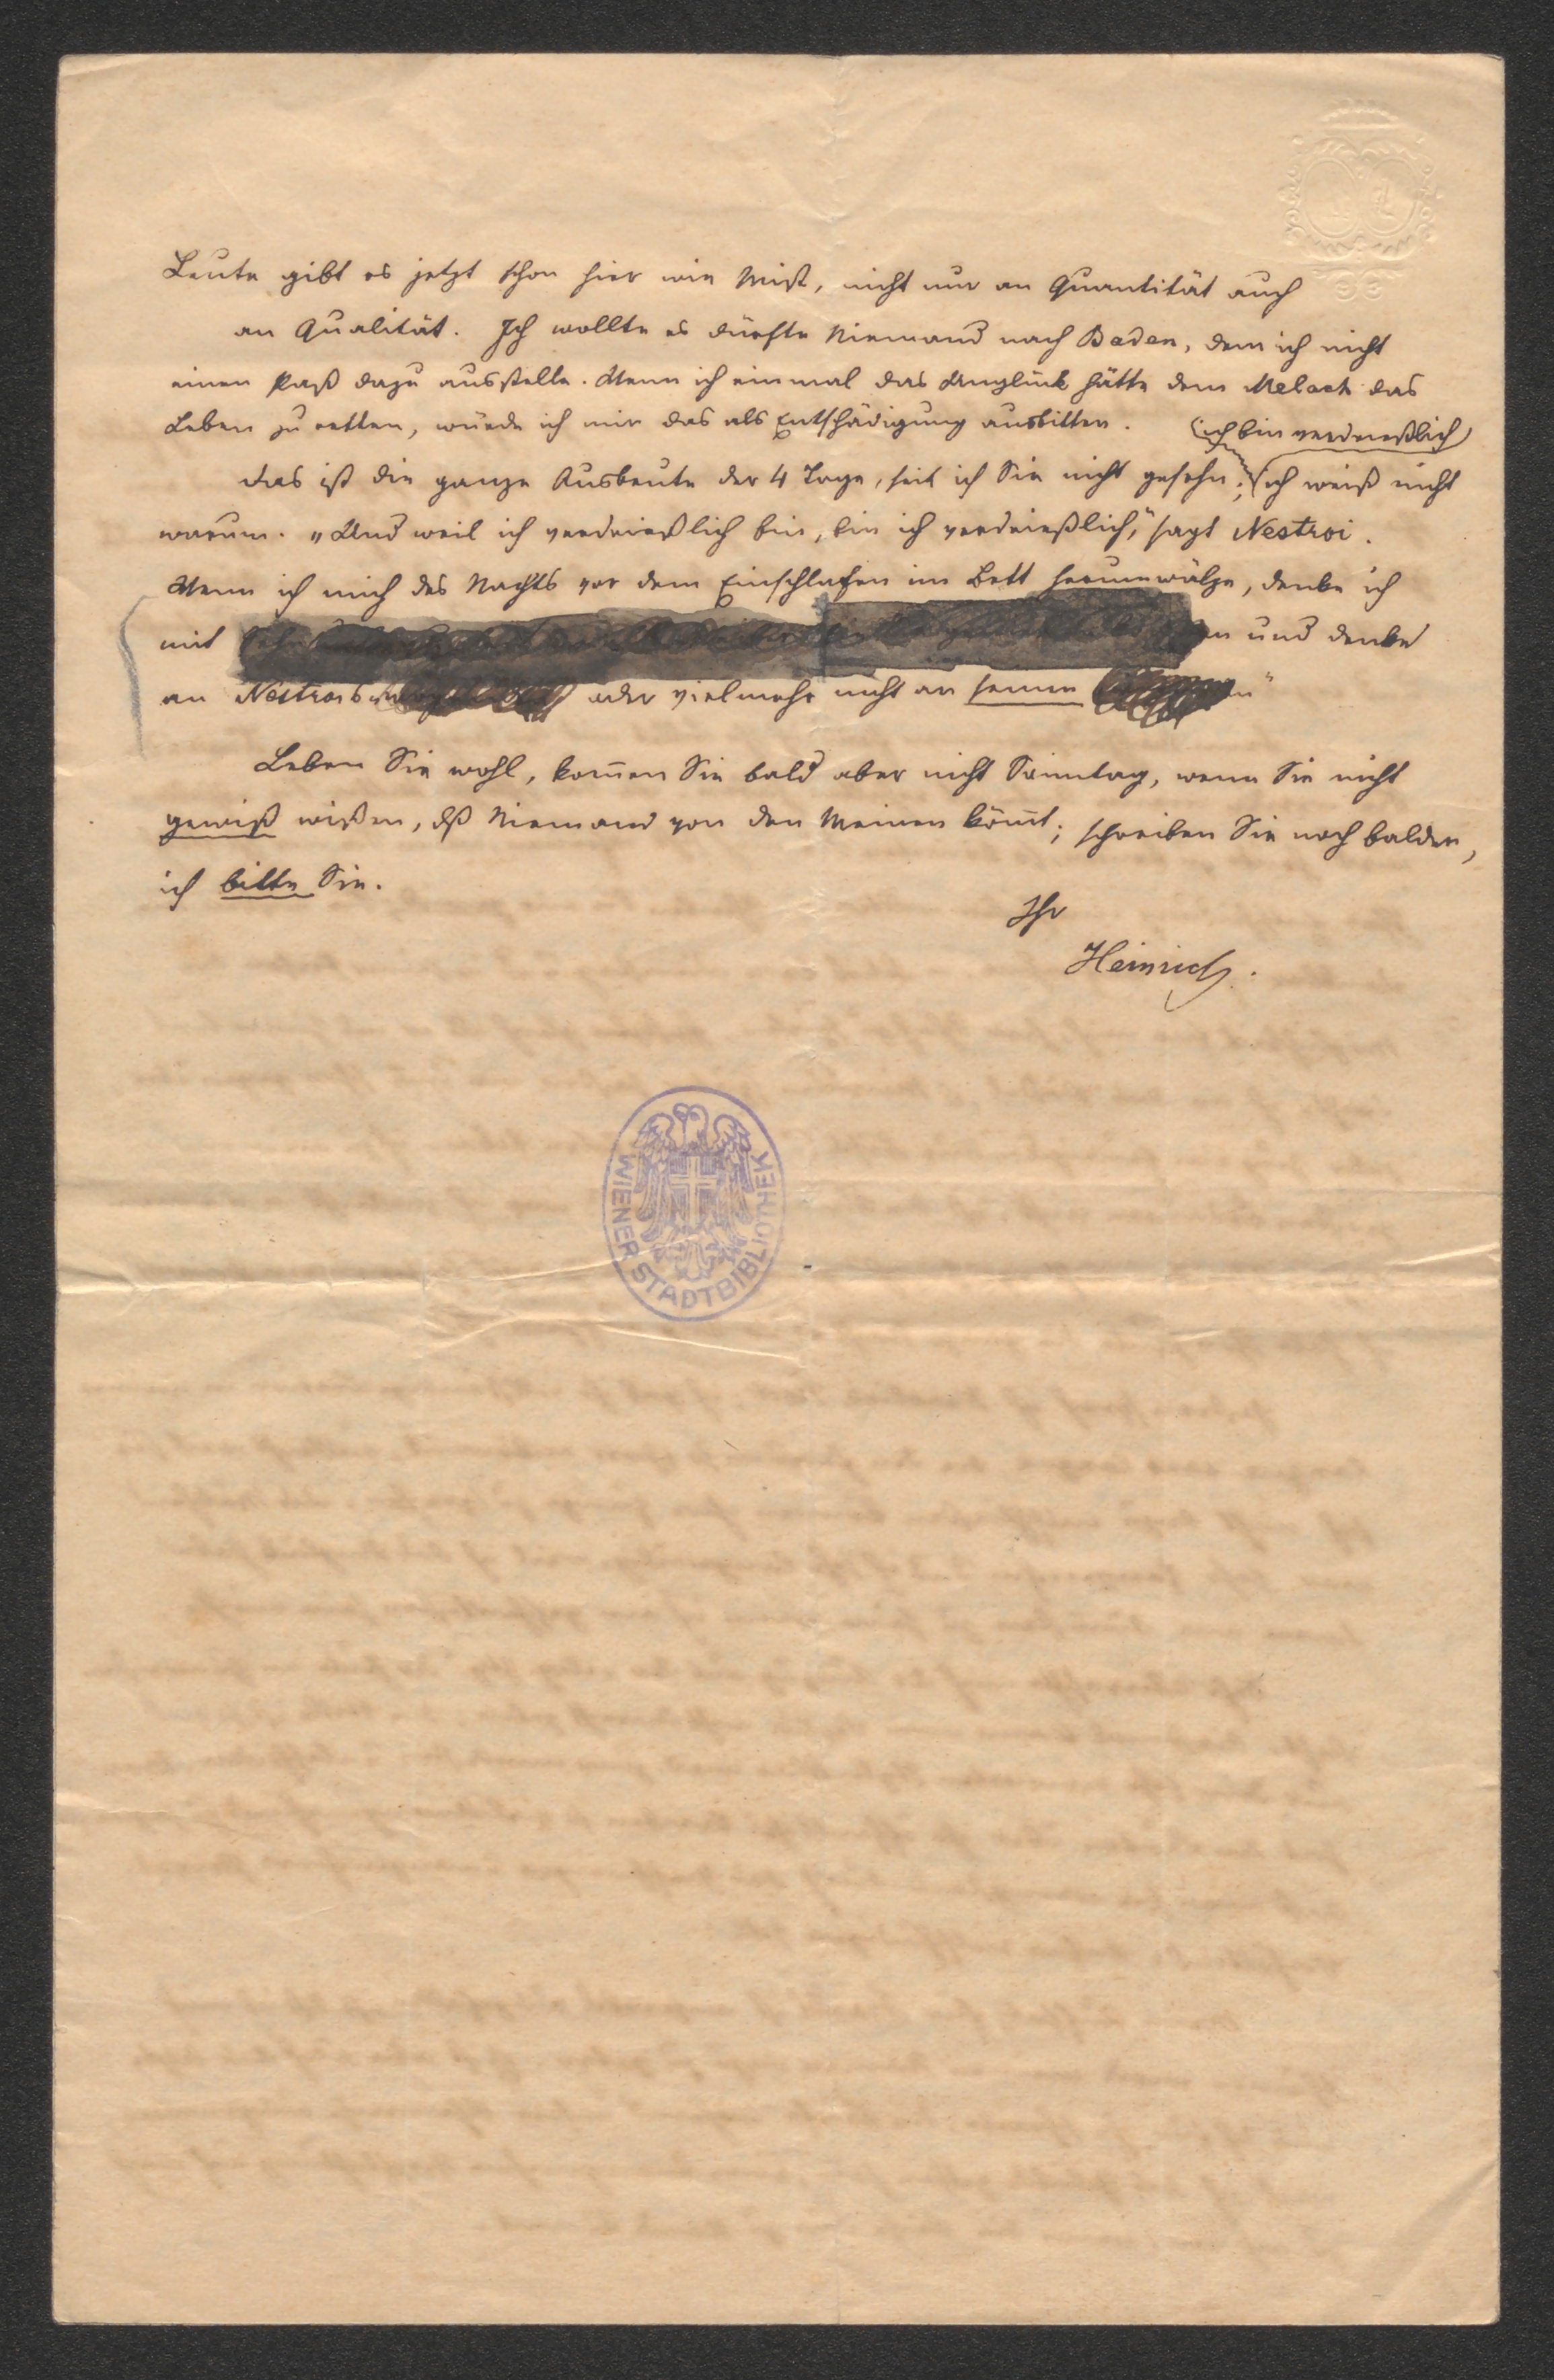 Leute gibt es jetzt schon hier wie Mist, nicht nur an Quantität auch
an Qualität. Ich wollte es dürfte Niemand nach Baden, dem ich nicht
einen Paß dazu ausstelle. Wenn ich einmal das Unglück hätte dem Melach das
Leben zu retten, würde ich mir das als Entschädigung ausbitten.
(ich bin verdrießlich)
Das ist die ganze Ausbeute der 4 Tage, seit ich Sie nicht gesehn; ich weiß nicht
warum. „Und weil ich verdrießlich bin, bin ich verdrießlich," sagt Nestroi.
Wenn ich mich des Nachts vor dem Einschlafen im Bett herumwälze, denke ich
mit und denke
an Nestrois oder vielmehr nicht an seinen
Leben Sie wohl, kom̄en Sie bald aber nicht Sonntag, wenn Sie nicht
gewiß wißen, dß Niemand von den Meinen köm̄t; schreiben Sie noch balder,
ich bitte Sie.
Ihr
Heinrich.
WIENER STADTBIBLIOTHEK